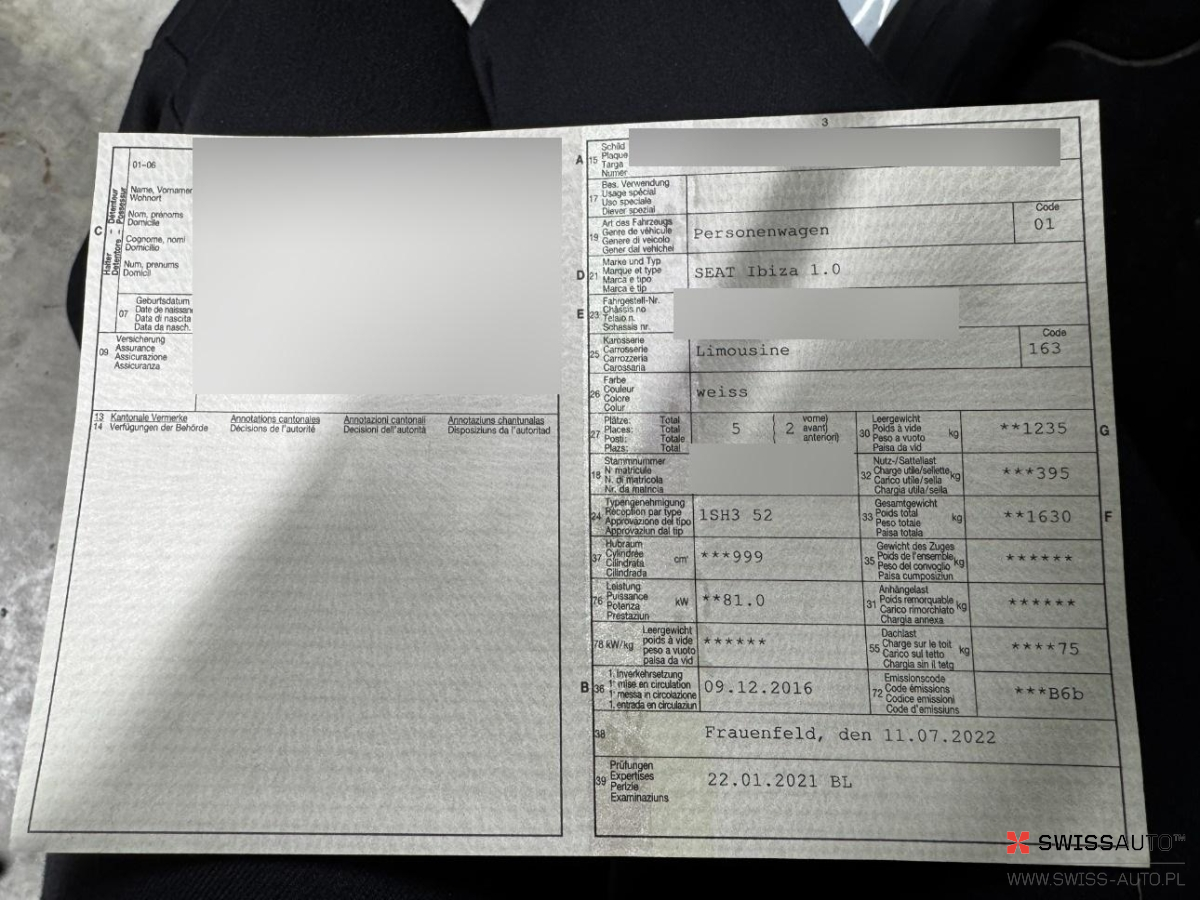 3
01–06
Halter – Détenteur
Detentors – Possessur
C
Name, Vornamen
Wohnort
Nom, prénoms
Domicile
Cognome, nomi
Domicilio
Num, prenums
Domicil
07
Geburtsdatum
Date de naissan
Data di nascita
Data da nasch.
09
Versicherung
Assurance
Assicurazione
Assicuranza
13 Kantonale Vermerke Annotations cantonales Annotazioni cantonali Annotaziuns chantunalas
14 Verfügungen der Behörde Décisions de l'autorité Decisioni dell'autorità Disposiziuns da l'autoritad
A 15
Schild
Plaque
Targa
Numer
17
Bes. Verwendung
Usage spécial
Uso speciale
Diever spezial
19
Art des Fahrzeugs
Genre de véhicule
Genere di veicolo
Gener dal vehichel
Personenwagen
Code
01
D 21
Marke und Typ
Marque et type
Marca e tipo
Marca e tip
SEAT Ibiza 1.0
E 23
Fahrgestell-Nr.
Châssis no
Telaio n.
Schassis nr.
25
Karosserie
Carrosserie
Carrozzeria
Carossaria
Limousine
Code
163
26
Farbe
Couleur
Colore
Colur
weiss
27
Plätze: Total
Places: Total
Posti: Totale
Plazs: Total
5 ( 2 vorne)
avant)
anteriori)
30
Leergewicht
Poids à vide
Peso a vuoto
Paisa da vid
kg
**1235
G
18
Stammnummer
N° matricule
N. di matricola
Nr. da matricla
32
Nutz-/Sattellast
Charge utile/sellette
Carico utile/sella
Chargia utila/sella
kg
***395
24
Typengenehmigung
Réception par type
Approvazione del tipo
Approvaziun dal tip
1SH3 52
33
Gesamtgewicht
Poids total
Peso totale
Paisa totala
kg
**1630
F
37
Hubraum
Cylindrée
Cilindrata
Cilindrada
cm³
***999
35
Gewicht des Zuges
Poids de l'ensemble
Peso del convoglio
Paisa cumposiziun
kg
******
76
Leistung
Puissance
Potenza
Prestaziun
kW
**81.0
31
Anhängelast
Poids remorquable
Carico rimorchiato
Chargia annexa
kg
******
78 kW/kg
Leergewicht
poids à vide
peso a vuoto
paisa da vid
******
55
Dachlast
Charge sur le toit
Carico sul tetto
Chargia sin il tetg
kg
****75
B 36
1. Inverkehrsetzung
1re mise en circulation
1a messa in circolazione
1. entrada en circulaziun
09.12.2016
72
Emissionscode
Code émissions
Codice emissioni
Code d'emissiuns
***B6b
38
Frauenfeld, den 11.07.2022
39
Prüfungen
Expertises
Perizie
Examinaziuns
22.01.2021 BL
SWISSAUTO™
WWW.SWISS-AUTO.PL